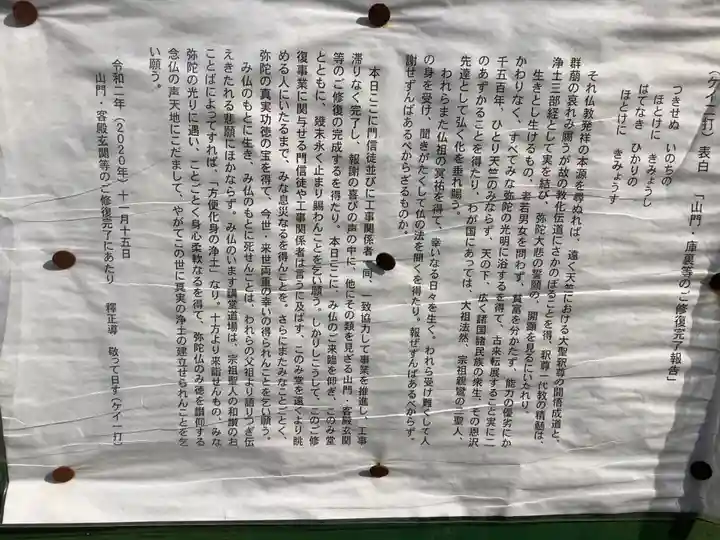 (ケイ二打) 表白 「山門・庫裏等のご修復完了報告」
つきせぬ いのちの
ほとけに きみょうし
はてなき ひかりの
ほとけに きみょうす
それ仏教発祥の本源を尋ぬれば、遠く天竺における大聖釈尊の開悟成道と、
群萠の哀れみ賜うが故の教化伝道にさかのぼることを得、釈尊一代教の精髄は、
浄土三部経として実を結び、弥陀大悲の誓願の、開顕を見るにいたれり。
生きとし生けるもの、老若男女を問わず、貧富を分かたず、能力の優劣にか
かわりなく、すべてみな弥陀の光明に浴するを得て、古来転展すること実に二
千五百年、ひとり天竺のみならず、天の下、広く諸国諸民族の衆生、その恩沢
のあずかることを得たり。わが国にあっては、大祖法然、宗祖親鸞の二聖人、
先達として弘く化を垂れ賜う。
われらまた仏祖の冥祐を得て、幸いなる日々を生く。われら受け難くして人
の身を受け、聞きがたくして仏の法を聞くを得たり。報ぜずんばあるべからず。
謝せずんばあるべからざるものか。
本日ここに門信徒並びに工事関係者一同、一致協力して事業を推進し、工事
滞りなく完了し、報謝の喜びの声の中に、他にその類を見ざる山門・客殿玄関
等のご修復の完成するを得たり。本日ここに、み仏のご来臨を仰ぎ、このみ堂
とともに、幾末永く止まり賜わんことを乞い願う。しかりしこうして、このご修
復事業に関与せる門信徒や工事関係者は言うに及ばず、このみ堂を遠くより眺
める人にいたるまで、みな息災なるを得んことを。さらにまたみなことごとく、
弥陀の真実功徳の宝を得て、今世・来世両重の幸いの得られんことを乞い願う。
み仏のもとに生き、み仏のもとに死せんことは、われらの父祖より語りつぎ伝
えきたれる悲願にほかならず。み仏のいます講堂道場は、宗祖聖人の和讃のお
ことばによってすれば、「方便化身の浄土」なり。十方より来詣せんもの、みな
弥陀の光りに遇い、ことごとく身心柔軟なるを得て、弥陀仏のみ徳を讃仰する
念仏の声天地にこだまして、やがてこの世に真実の浄土の建立せられんことを乞
い願う。
令和二年（2020年）十一月十五日
山門・客殿玄関等のご修復完了にあたり 釋正導 敬って白す（ケイ一打）